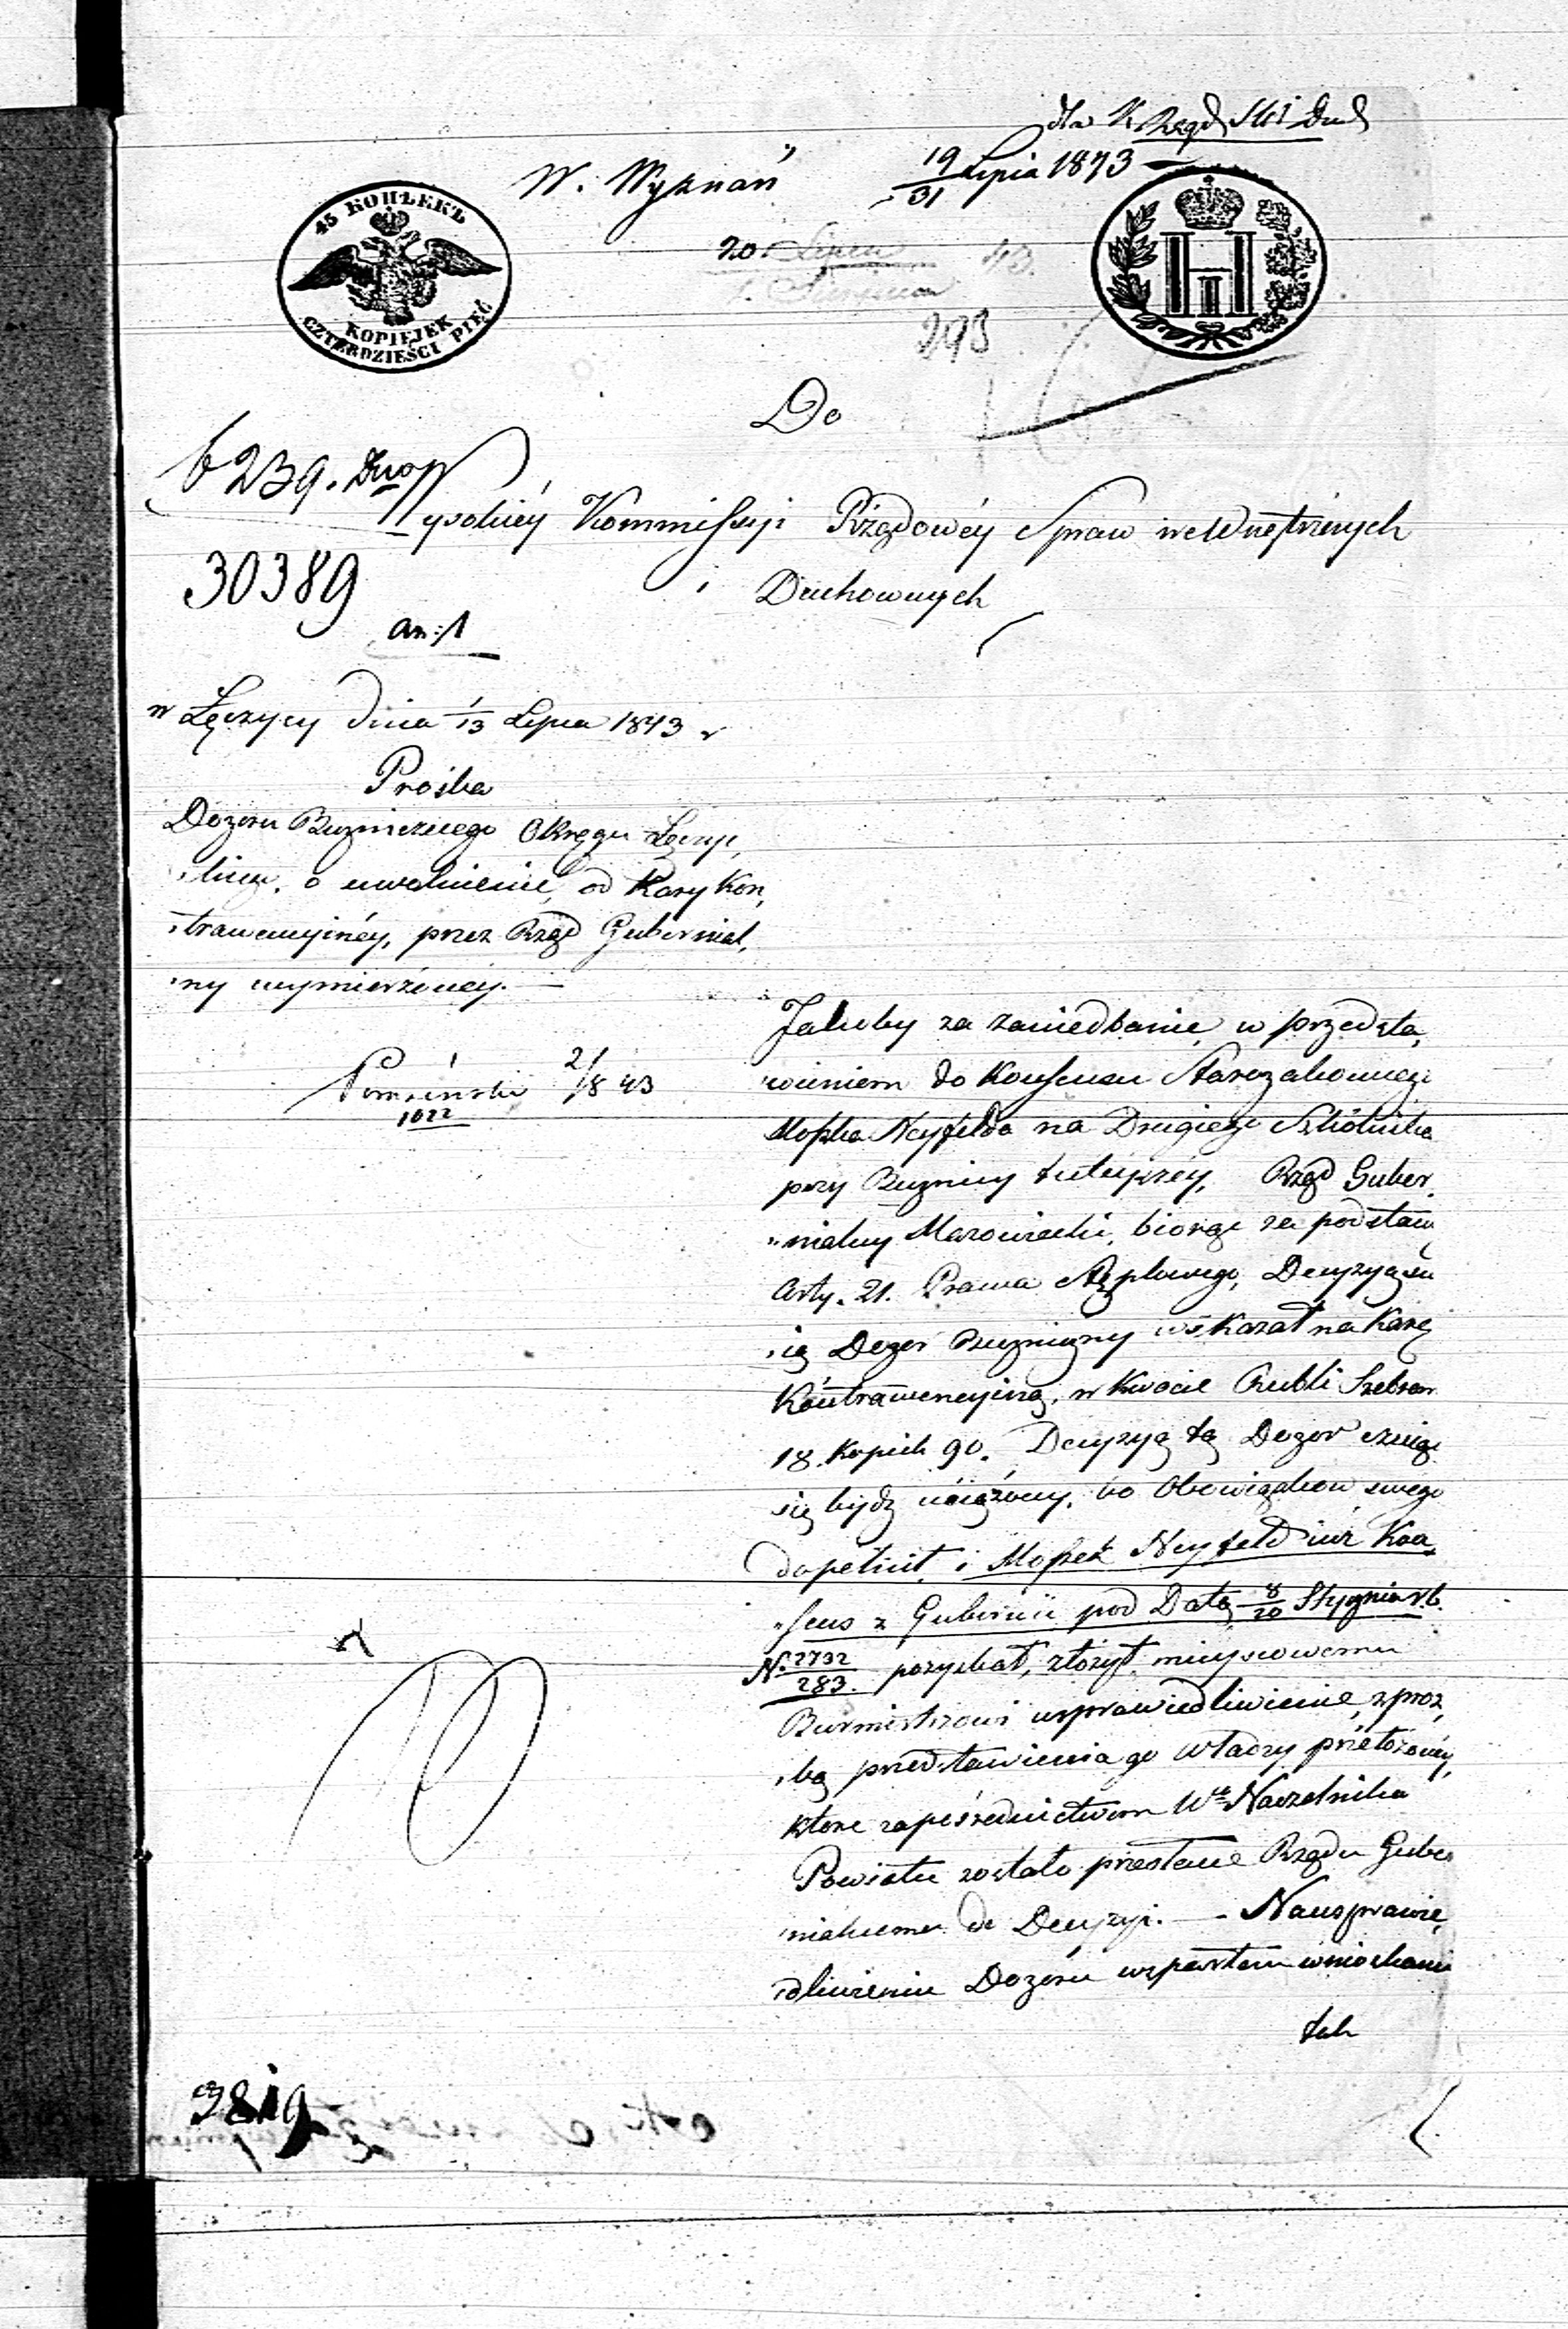 dla K Rząd SW i Duch
W. Wyznań
19/31 Lipca 1843
45 КОПѢЕКЪ
KOPIEJEK
CZTERDZIEŚCI PIĘĆ
20 Lipca
1. Sierpnia 43.
293
Do
6239.
Wysokiéy Kommissyi Rządowéy Spraw wewnętrznych
i Duchownych
30389
an: 1
w Łęczycy dnia 1/13 Lipca 1843 r
Prośba
Dozoru Buzniczego Okręgu Łęczyc,
„kiego, o uwolnienie, od Kary Kon,
„trawencyinéy, przez Rząd Gubernial,
„ny wymierzonéy. —
2/8 43
1022
Jakoby za zaniedbanie, w przedsta,
„wieniem do Konsensu Starozakonnego
Moszka Neyfelda na Drugiego Szkólnika
przy Buznicy tuteyszéy, Rząd Guber,
„nialny Mazowiecki, biorąc za podstawę
Arty. 21. Prawa Stęplowego, Decyzyą swą
Dozor Buzniczny wskazał na Karę
Kontrawencyiną, w kwocie Rubli Srebrem
18. Kopiek 90. Decyzyą tą Dozor czuiąc
się bydź uciążony, bo Obowiązkow swego
dopełnił, i Moszek Neyfeld iuż Kon,
„sens z Gubernii pod Datą 8/20 Stycznia r.b.
N. 2732/283. pozyskał, złożył mieyscowemu
Burmistrzowi usprawiedliwienie, z proź,
„bą przedstawienia go Władzy przełożonéy,
które zapośrednictwem Wgo Naczelnika
Powiatu zostało przesłane Rządu Guber
„nialnemu do Decyzyi. — Nausprawie,
„dliwieniu Dozoru wspartem wnioskami
tak